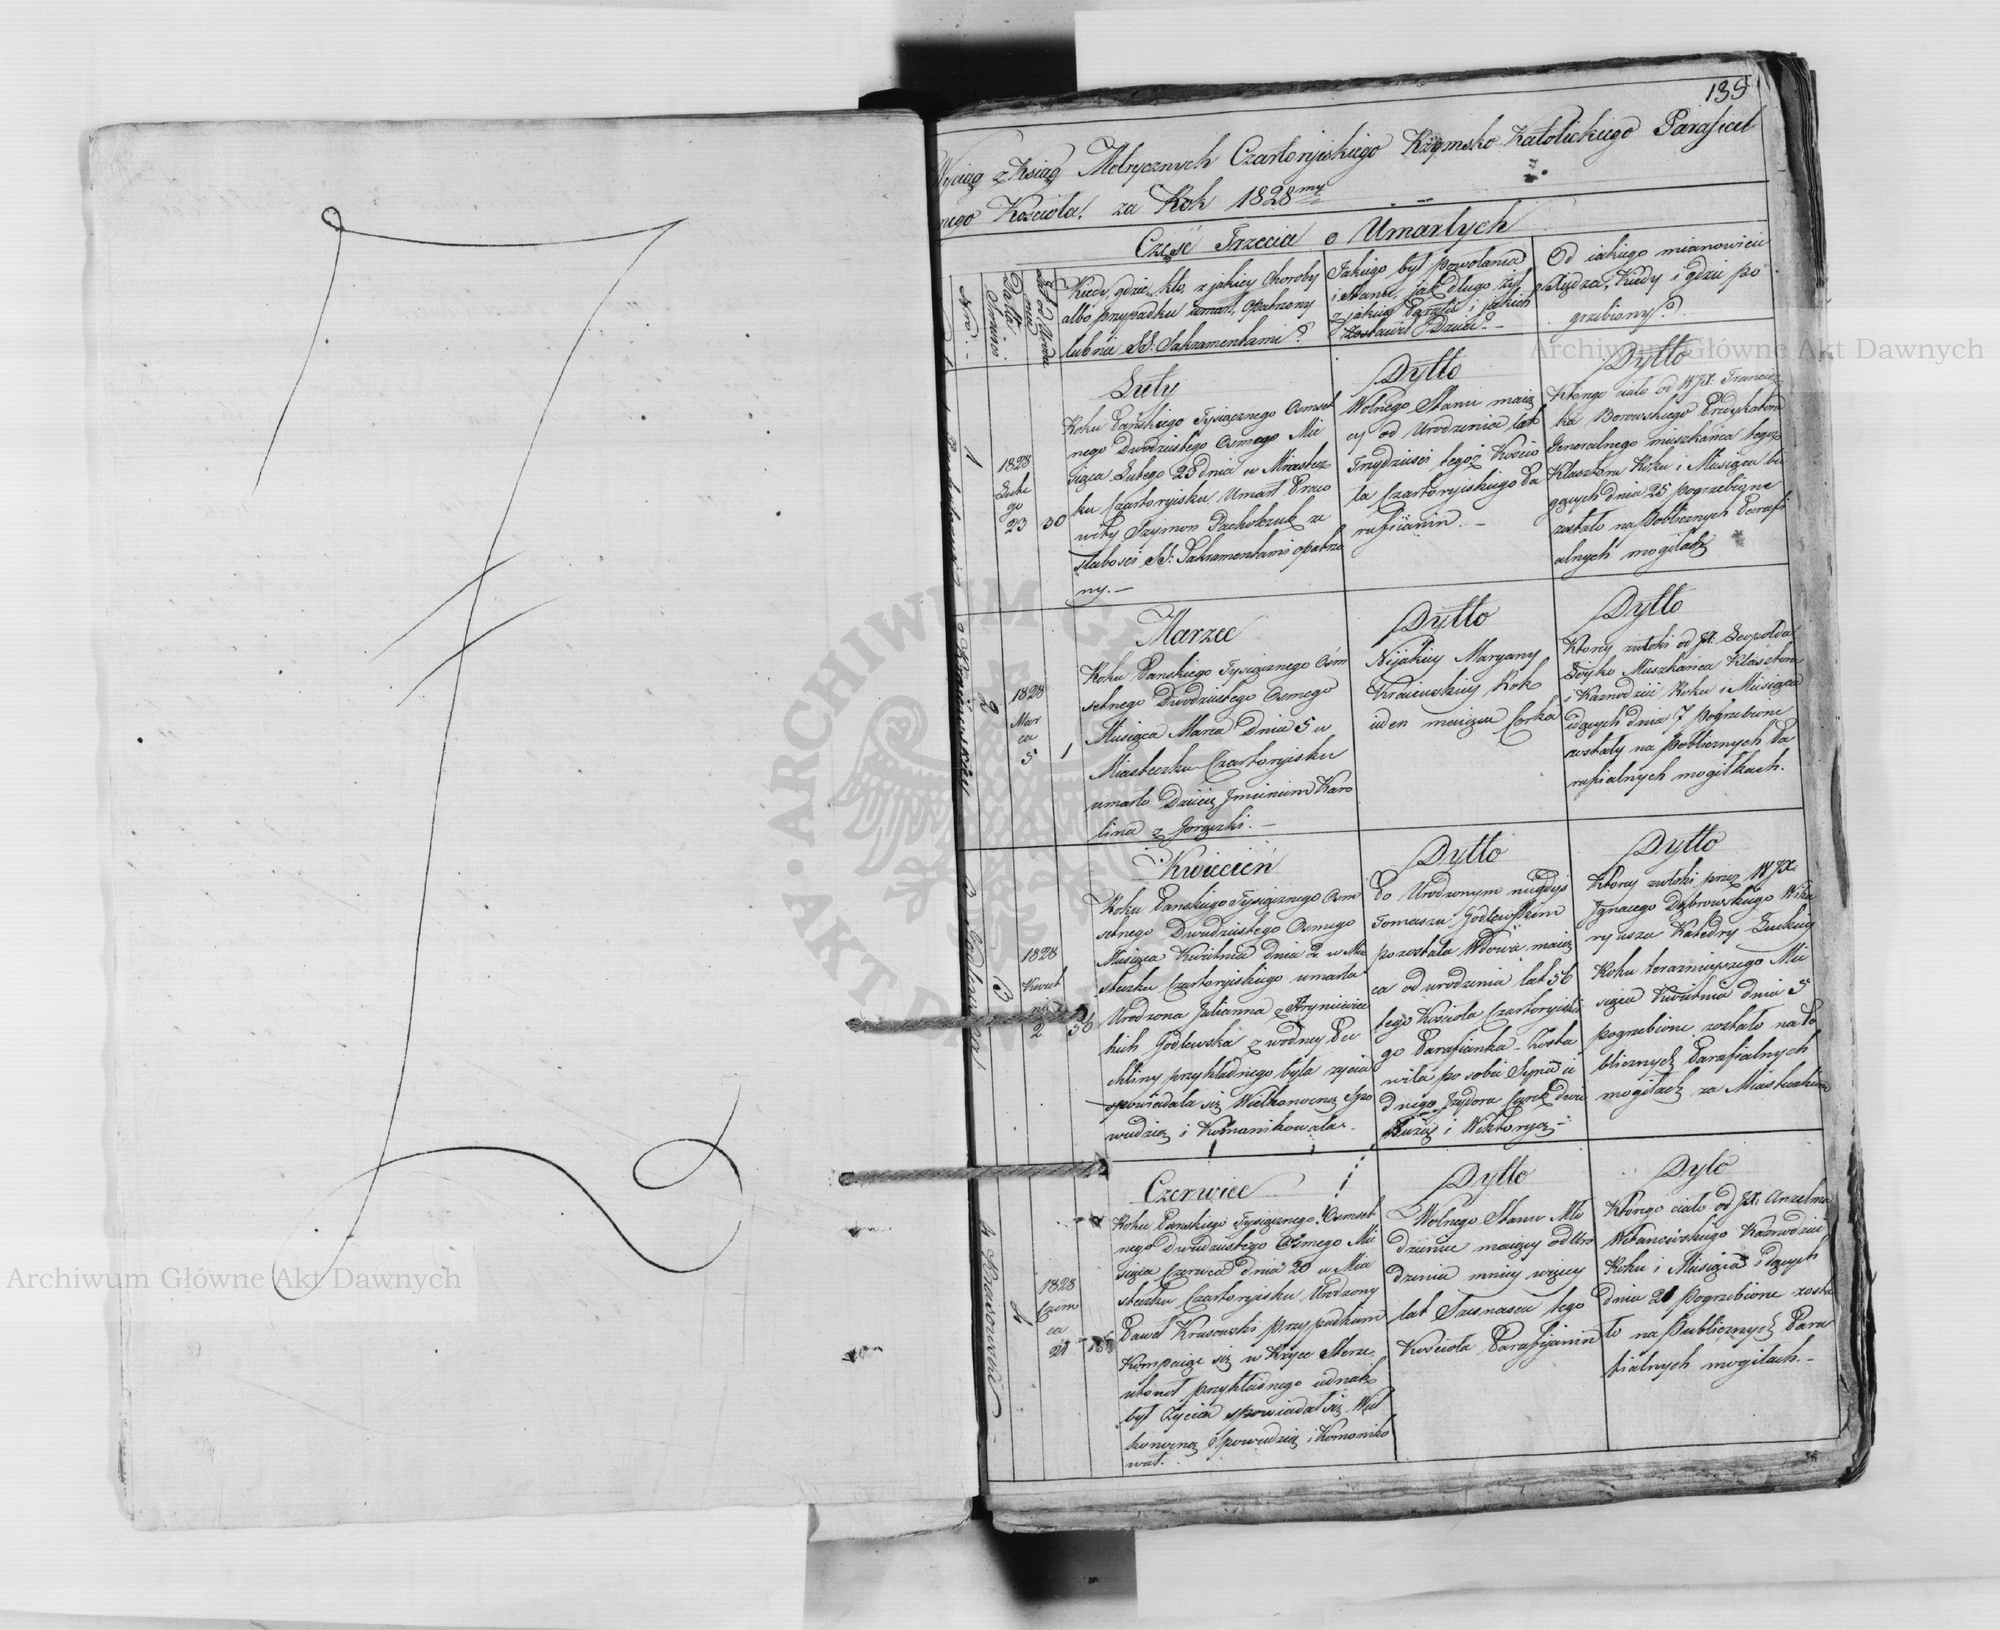 139
Wyciąg z Ksiąg Metrycznych Czartoryiskiego Rzymsko Katolickiego Parafial
nego Kościoła za Rok 1828my
Część Trzecia o Umarłych
Nro.
Data
Kiedy, gdzie, kto, z jakiey choroby
albo przypadku umarł, opatrzony
lub nie SS: Sakramentami?
Jakiego był powołania
i stanu, jak długo żył,
z jakiey Parafii i jakich
zostawił Dzieci?
Od iakiego mianowicie
Xiędza, Kiedy i gdzie po
grzebiony?
1
1828
Lute
go
23
30
Luty
Roku Pańskiego Tysiącznego Osmset
nego Dwudziestego Osmego Mie
siąca Lutego 23 dnia w Miastecz
ku Czartoryisku Umarł Praco
wity Szymon Pacholczuk ze
słabości SS: Sakramentami opatrzo
ny.
Dytto
Wolnego Stanu maią
cy od Urodzenia lat
Trzydzieści tegoż Kościo
ła Czartoryiskiego Pa
rafiianin.
Dytto
Którego ciało od WJX: Francisz
ka Borowskiego Predykatora
Generalnego mieszkańca tegoż
Klasztoru Roku i Miesiąca bie
gących dnia 25 pogrzebione
zostało na Publicznych Parafi
alnych mogiłach
2
1828
Mar
ca
5
1
Marzec
Roku Pańskiego Tysiącznego Ośm
setnego Dwudziestego Osmego
Miesiąca Marca Dnia 5 w
Miasteczku Czartoryisku
umarło Dziecię Jmieniem Karo
lina z Gorączki.
Dytto
Nijakiey Maryany
Rok
ieden maiące Corka
Dytto
Ktorey zwłoki od JX: Leopolda
Mieszkańca Klasztoru
i Kaznodziei Roku i Miesiąca
idących dnia 7 Pogrzebione
zostały na Publicznych Pa
rafialnych mogiłkach.
3
1828
Kwiet
nia
2
56
Kwiecień
Roku Pańskiego Tysiącznego Osm
setnego Dwudziestego Osmego
Miesiąca Kwietnia dnia 2 w Mia
steczku Czartoryiskiego umarła
Urodzona Julianna z Hryniewiec
kich Godlewska z wodney Pu
chliny przykładnego była życia
spowiadała się Wielkanocną Spo
wiedzią i Komonikowała
Dytto
Po Urodzonym niegdyś
Tomaszu Godlewskim
pozostała Wdowa maią
ca od urodzenia lat 56
tego Kościoła Czartoryiskie
go Parafianka Zosta
wiła po sobie Syna ie
dnego Jzydora Corek dwie
i Wiktoryą
Dytto
Ktorey zwłoki przez WJX:
Jgnacego Dąbrowskiego Wika
ryusza Katedry Łuckiey
Roku teraznieyszego Mie
siąca Kwietnia dnia 5
pogrzebione zostało na Po
blicznych Parafialnych
mogiłach za Miasteczkiem
4
1828
Czerw
ca
Czerwiec
Roku Pańskiego Tysiącznego Osmset
nego Dwudziestego Osmego Mie
siąca Czerwca dnia 20 w Mia
steczku Czartoryisku Urodzony
Paweł Krasowski przypadkiem
Kompaiąc się w Rzyce Sterze
utonoł przykładnego iednak
był Życia spowiadał się Wiel
kanocną Spowiedzią i Komoniko
wał.
Dytto
Wolnego Stanu Mło
dzieniec maiący od Uro
dzenia mniey więcey
lat Szesnascie tego
Kościoła Parafijanin
Dyto
Ktorego ciało od JX: Anzelma
Witanowskiego Kaznodziei
Roku i Miesiąca idących
dnia 21 Pogrzebione zosta
ło na Publicznych Para
fialnych mogiłach.
ARCHIWUM GŁÓWNE AKT DAWNYCH
Archiwum Główne Akt Dawnych
Archiwum Główne Akt Dawnych